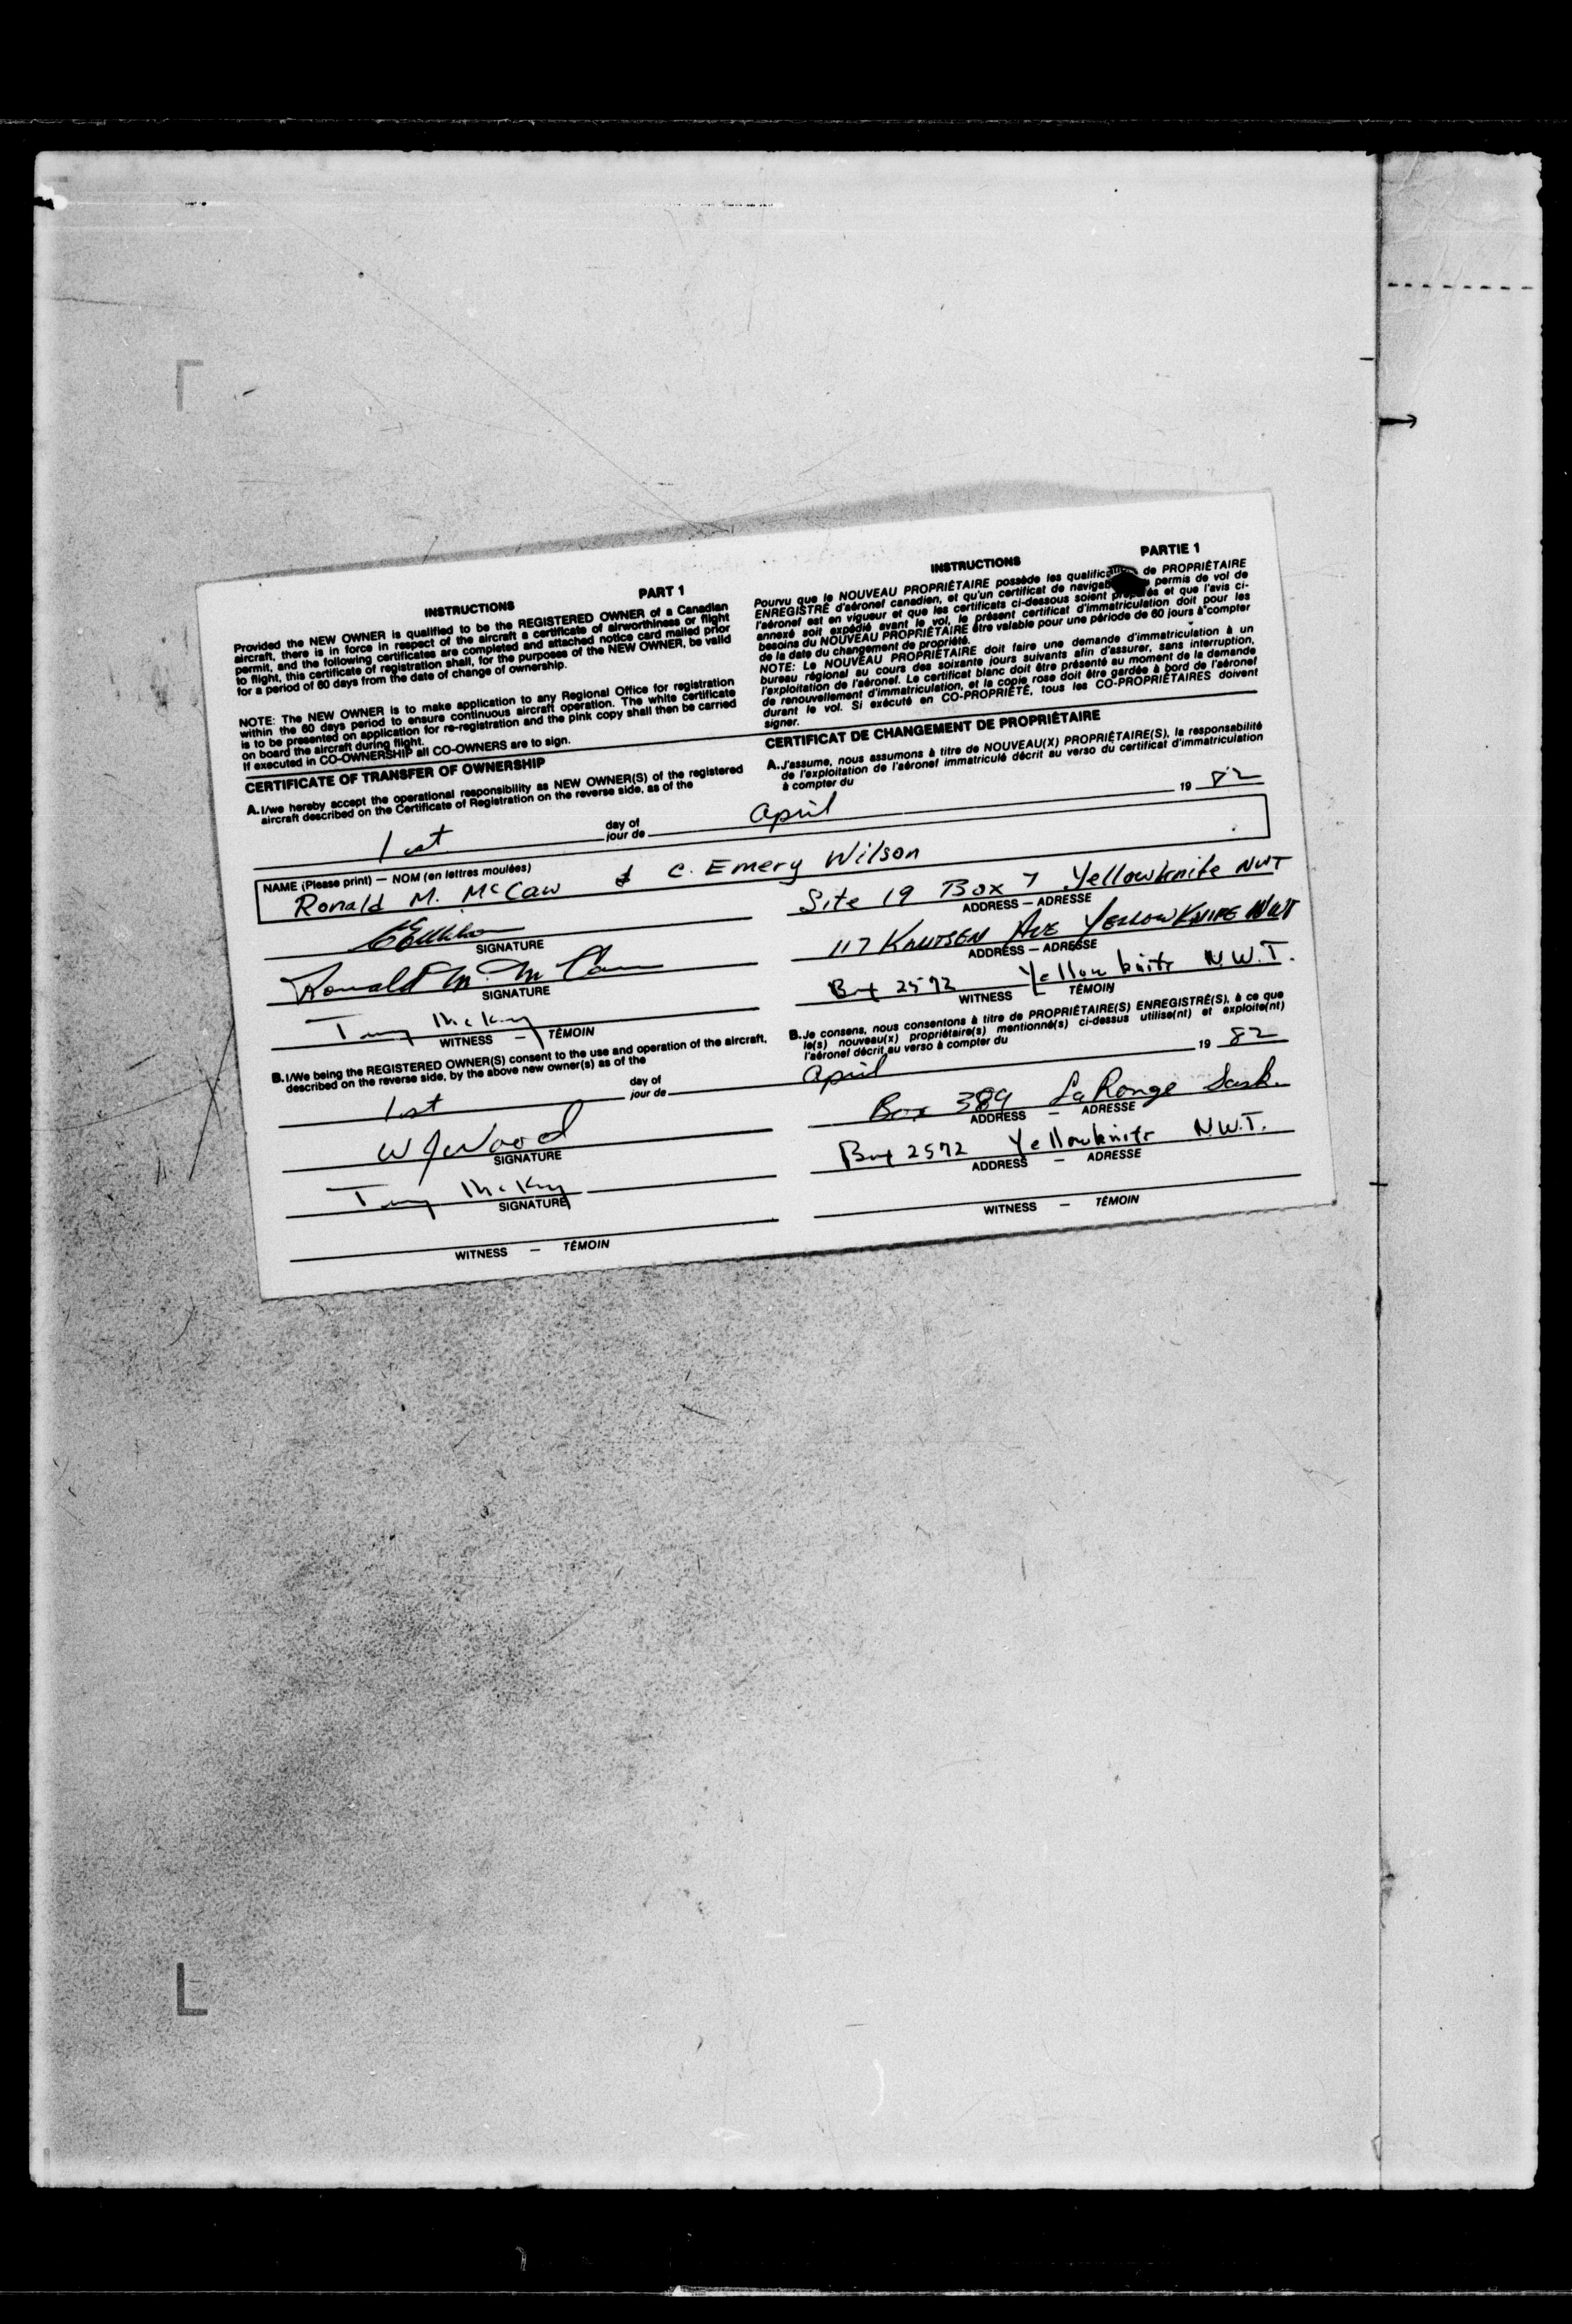 PART 1
INSTRUCTIONS
Provided the NEW OWNER is qualified to be the REGISTERED OWNER of a Canadian
aircraft, there is in force in respect of the aircraft a certificate of airworthiness or flight
permit, and the following certificates are completed and attached notice card mailed prior
to flight, this certificate of registration shall, for the purposes of the NEW OWNER, be valid
for a period of 60 days from the date of change of ownership.
NOTE: The NEW OWNER is to make application to any Regional Office for registration
within the 60 day period to ensure continuous aircraft operation. The white certificate
is to be presented on application for re-registration and the pink copy shall then be carried
on board the aircraft during flight.
If executed in CO-OWNERSHIP all CO-OWNERS are to sign.
PARTIE 1
INSTRUCTIONS
Pourvu que le NOUVEAU PROPRIÉTAIRE possède les de PROPRIÉTAIRE
ENREGISTRÉ d'aéronef canadien, et qu'un certificat de permis de vol de
l'aéronef est en vigueur et que les certificats ci-dessous soient préparés et que l'avis ci-
annexé soit expédié avant le vol, le présent certificat d'immatriculation doit pour les
besoins du NOUVEAU PROPRIÉTAIRE être valable pour une période de 60 jours à compter
de la date du changement de propriété.
NOTE: Le NOUVEAU PROPRIÉTAIRE doit faire une demande d'immatriculation à un
bureau régional au cours des soixante jours suivants afin d'assurer, sans interruption,
l'exploitation de l'aéronef. Le certificat blanc doit être présenté au moment de la demande
de renouvellement d'immatriculation, et la copie rose doit être gardée à bord de l'aéronef
durant le vol. Si exécuté en CO-PROPRIÉTÉ, tous les CO-PROPRIÉTAIRES doivent
signer.
CERTIFICATE OF TRANSFER OF OWNERSHIP
A. I/we hereby accept the operational responsibility as NEW OWNER(S) of the registered
aircraft described on the Certificate of Registration on the reverse side, as of the
CERTIFICAT DE CHANGEMENT DE PROPRIÉTAIRE
A. J'assume, nous assumons à titre de NOUVEAU(X) PROPRIÉTAIRE(S), la responsabilité
de l'exploitation de l'aéronef immatriculé décrit au verso du certificat d'immatriculation
à compter du
1st day of April 19 82
jour de
NAME (Please print) — NOM (en lettres moulées)
Ronald M. McCaw & C. Emery Wilson
Site 19 Box 7 Yellowknife NWT
SIGNATURE
ADDRESS — ADRESSE
Ronald M. McCaw 117 KNUTSEN AVE YELLOWKNIFE NWT
SIGNATURE
ADDRESS — ADRESSE
McKay Box 2572 Yellowknife N.W.T.
WITNESS — TÉMOIN
WITNESS TÉMOIN
B. I/We being the REGISTERED OWNER(S) consent to the use and operation of the aircraft,
described on the reverse side, by the above new owner(s) as of the
B. Je consens, nous consentons à titre de PROPRIÉTAIRE(S) ENREGISTRÉ(S), à ce que
le(s) nouveau(x) propriétaire(s) mentionné(s) ci-dessus utilise(nt) et exploite(nt)
l'aéronef décrit au verso à compter du
1st day of April 19 82
jour de
W J Wood Box 389 LaRonge Sask.
SIGNATURE
ADDRESS — ADRESSE
McKay Box 2572 Yellowknife N.W.T.
SIGNATURE
ADDRESS — ADRESSE
WITNESS — TÉMOIN
WITNESS — TÉMOIN